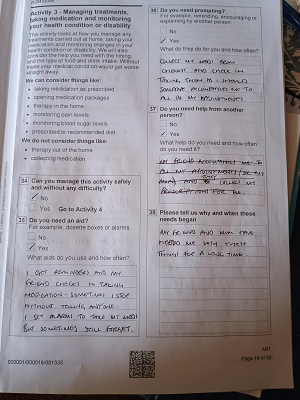 Activity 3 - Managing treatments,
taking medication and monitoring
your health condition or disability
This activity looks at how you manage any
treatments carried out at home, taking your
medication and monitoring changes in your
health condition or disability. We will also
consider the help you need with the timing,
and the type of food and drink intake. Without
these your medical condition would get worse
straight away
We can consider things like:
• taking medication as prescribed
• opening medication packages
• therapy in the home
• monitoring pain levels
• monitoring blood sugar levels
• prescribed or recommended diet
We do not consider things like:
• therapy out of the home
• collecting medication
34 Can you manage this activity safely
and without any difficulty?
No
Yes Go to Activity 4
35 Do you need an aid?
For example, dosette boxes or alarms
No
Yes
What aids do you use and how often?
I GET REMINDERS AND MY
FRIEND CHECKS I'M TAKING
MEDICATION - SOMETIMES I STOP
WITHOUT TELLING ANYONE -
I SET ALARMS TO TAKE MY MEDS
BUT SOMETIMES STILL FORGET.
36 Do you need prompting?
For example, reminding, encouraging or
explaining by another person
No
Yes
What do they do for you and how often?
COLLECT MY MEDS FROM
CHEMIST AND CHECK I'M
TAKING THEM
SOMEONE ACCOMPANIES ME TO
ALL OF MY APPOINTMENTS
37 Do you need help from another
person?
No
Yes
What help do you need and how often
do you need it?
MY FRIEND ME TO
ALL MY APPOINTMENTS
AND COLLECT MY
PRESCRIPTIONS FOR ME.
38 Please tell us why and when these
needs began
MY FRIEND AND MUM HAVE
HELPED ME WITH THESE
THINGS FOR A LONG TIME.
AR1
Page 19 of 50
000001/000016/001335